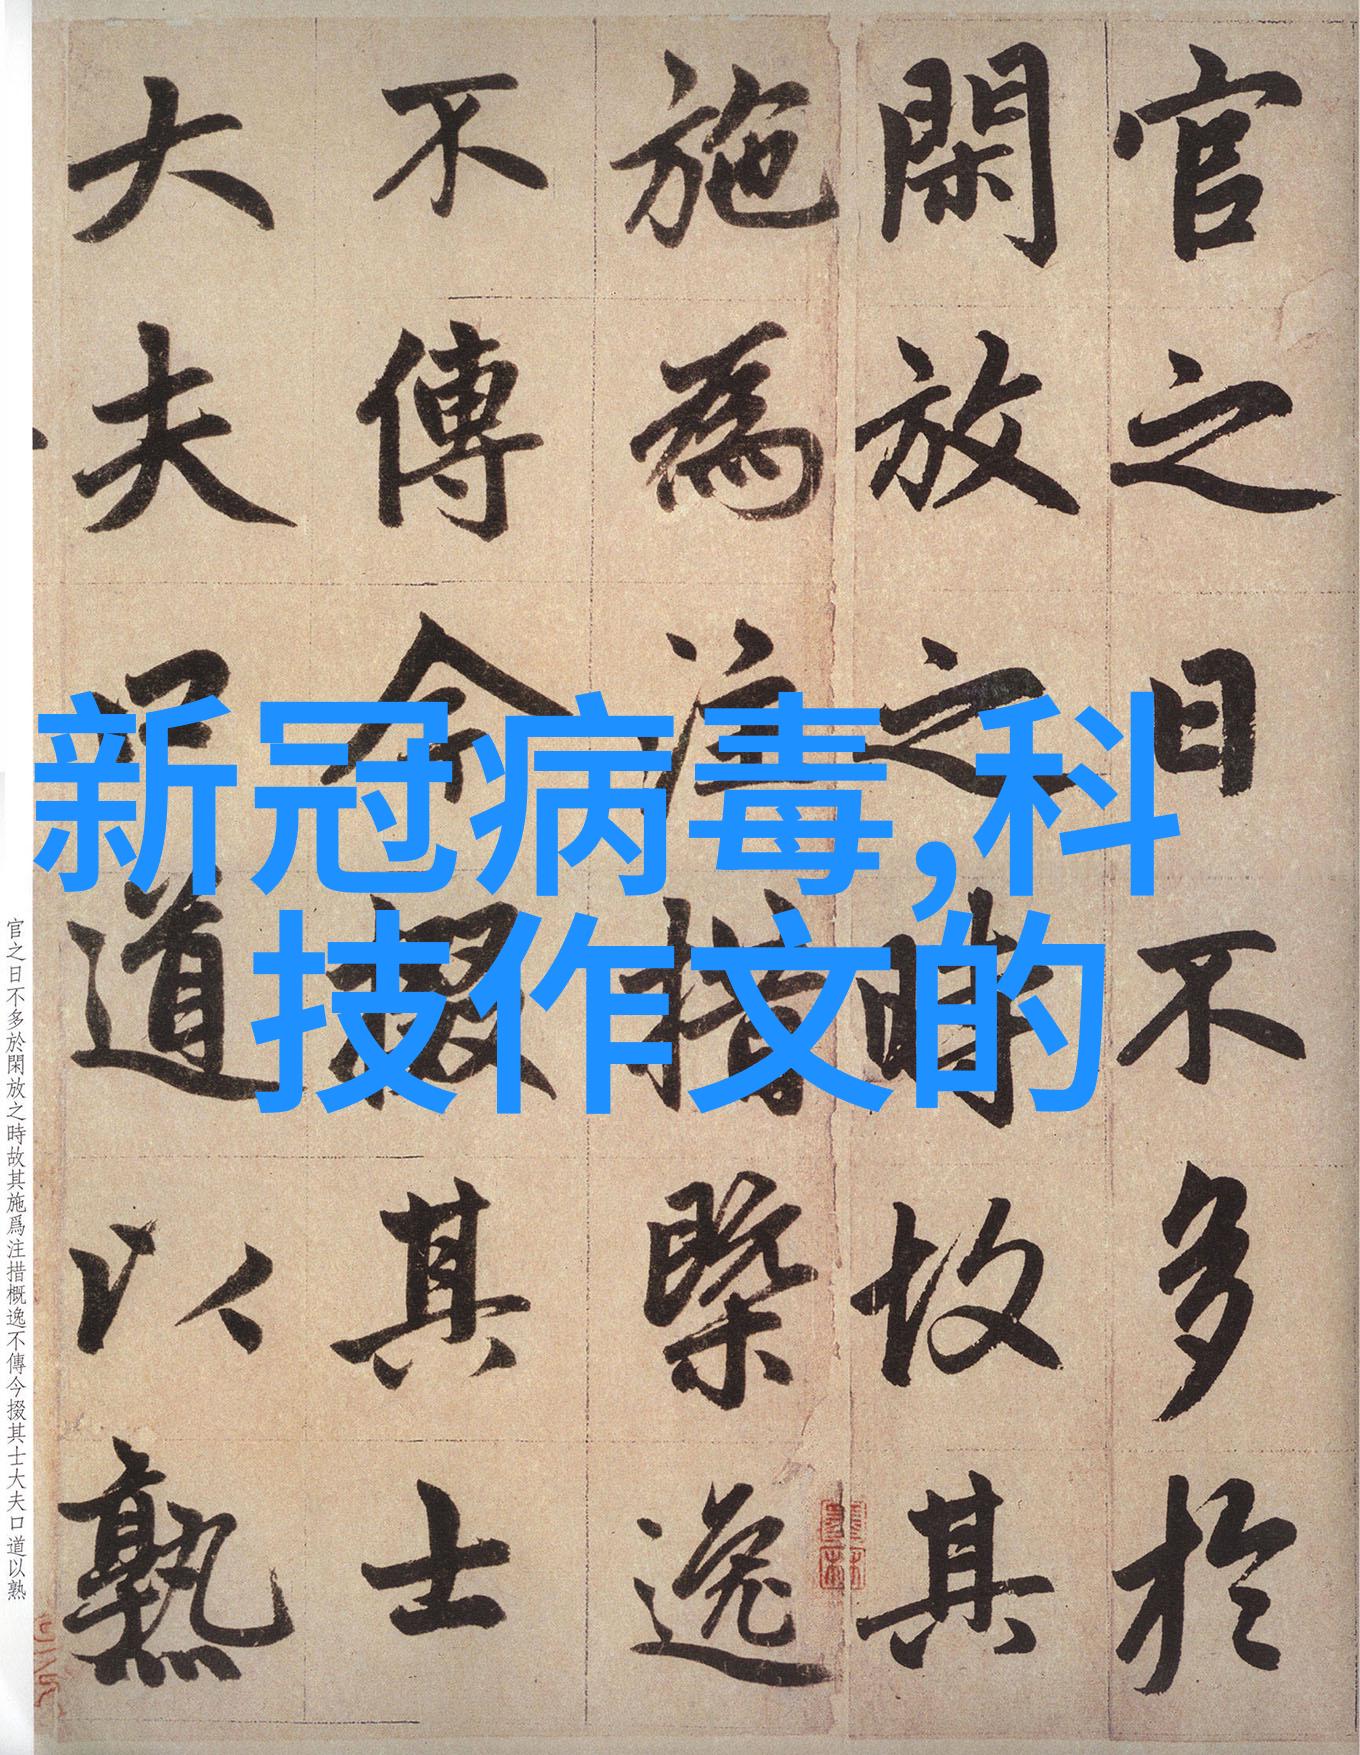 官之日不多於
閑放之時故其
施為注措槩逸
不傳今掇其士
大夫口道以熟
新冠病毒,科
技作文的
官之日不多於閑放之時故其施爲注措概逸不傳今掇其士大夫口道以熟